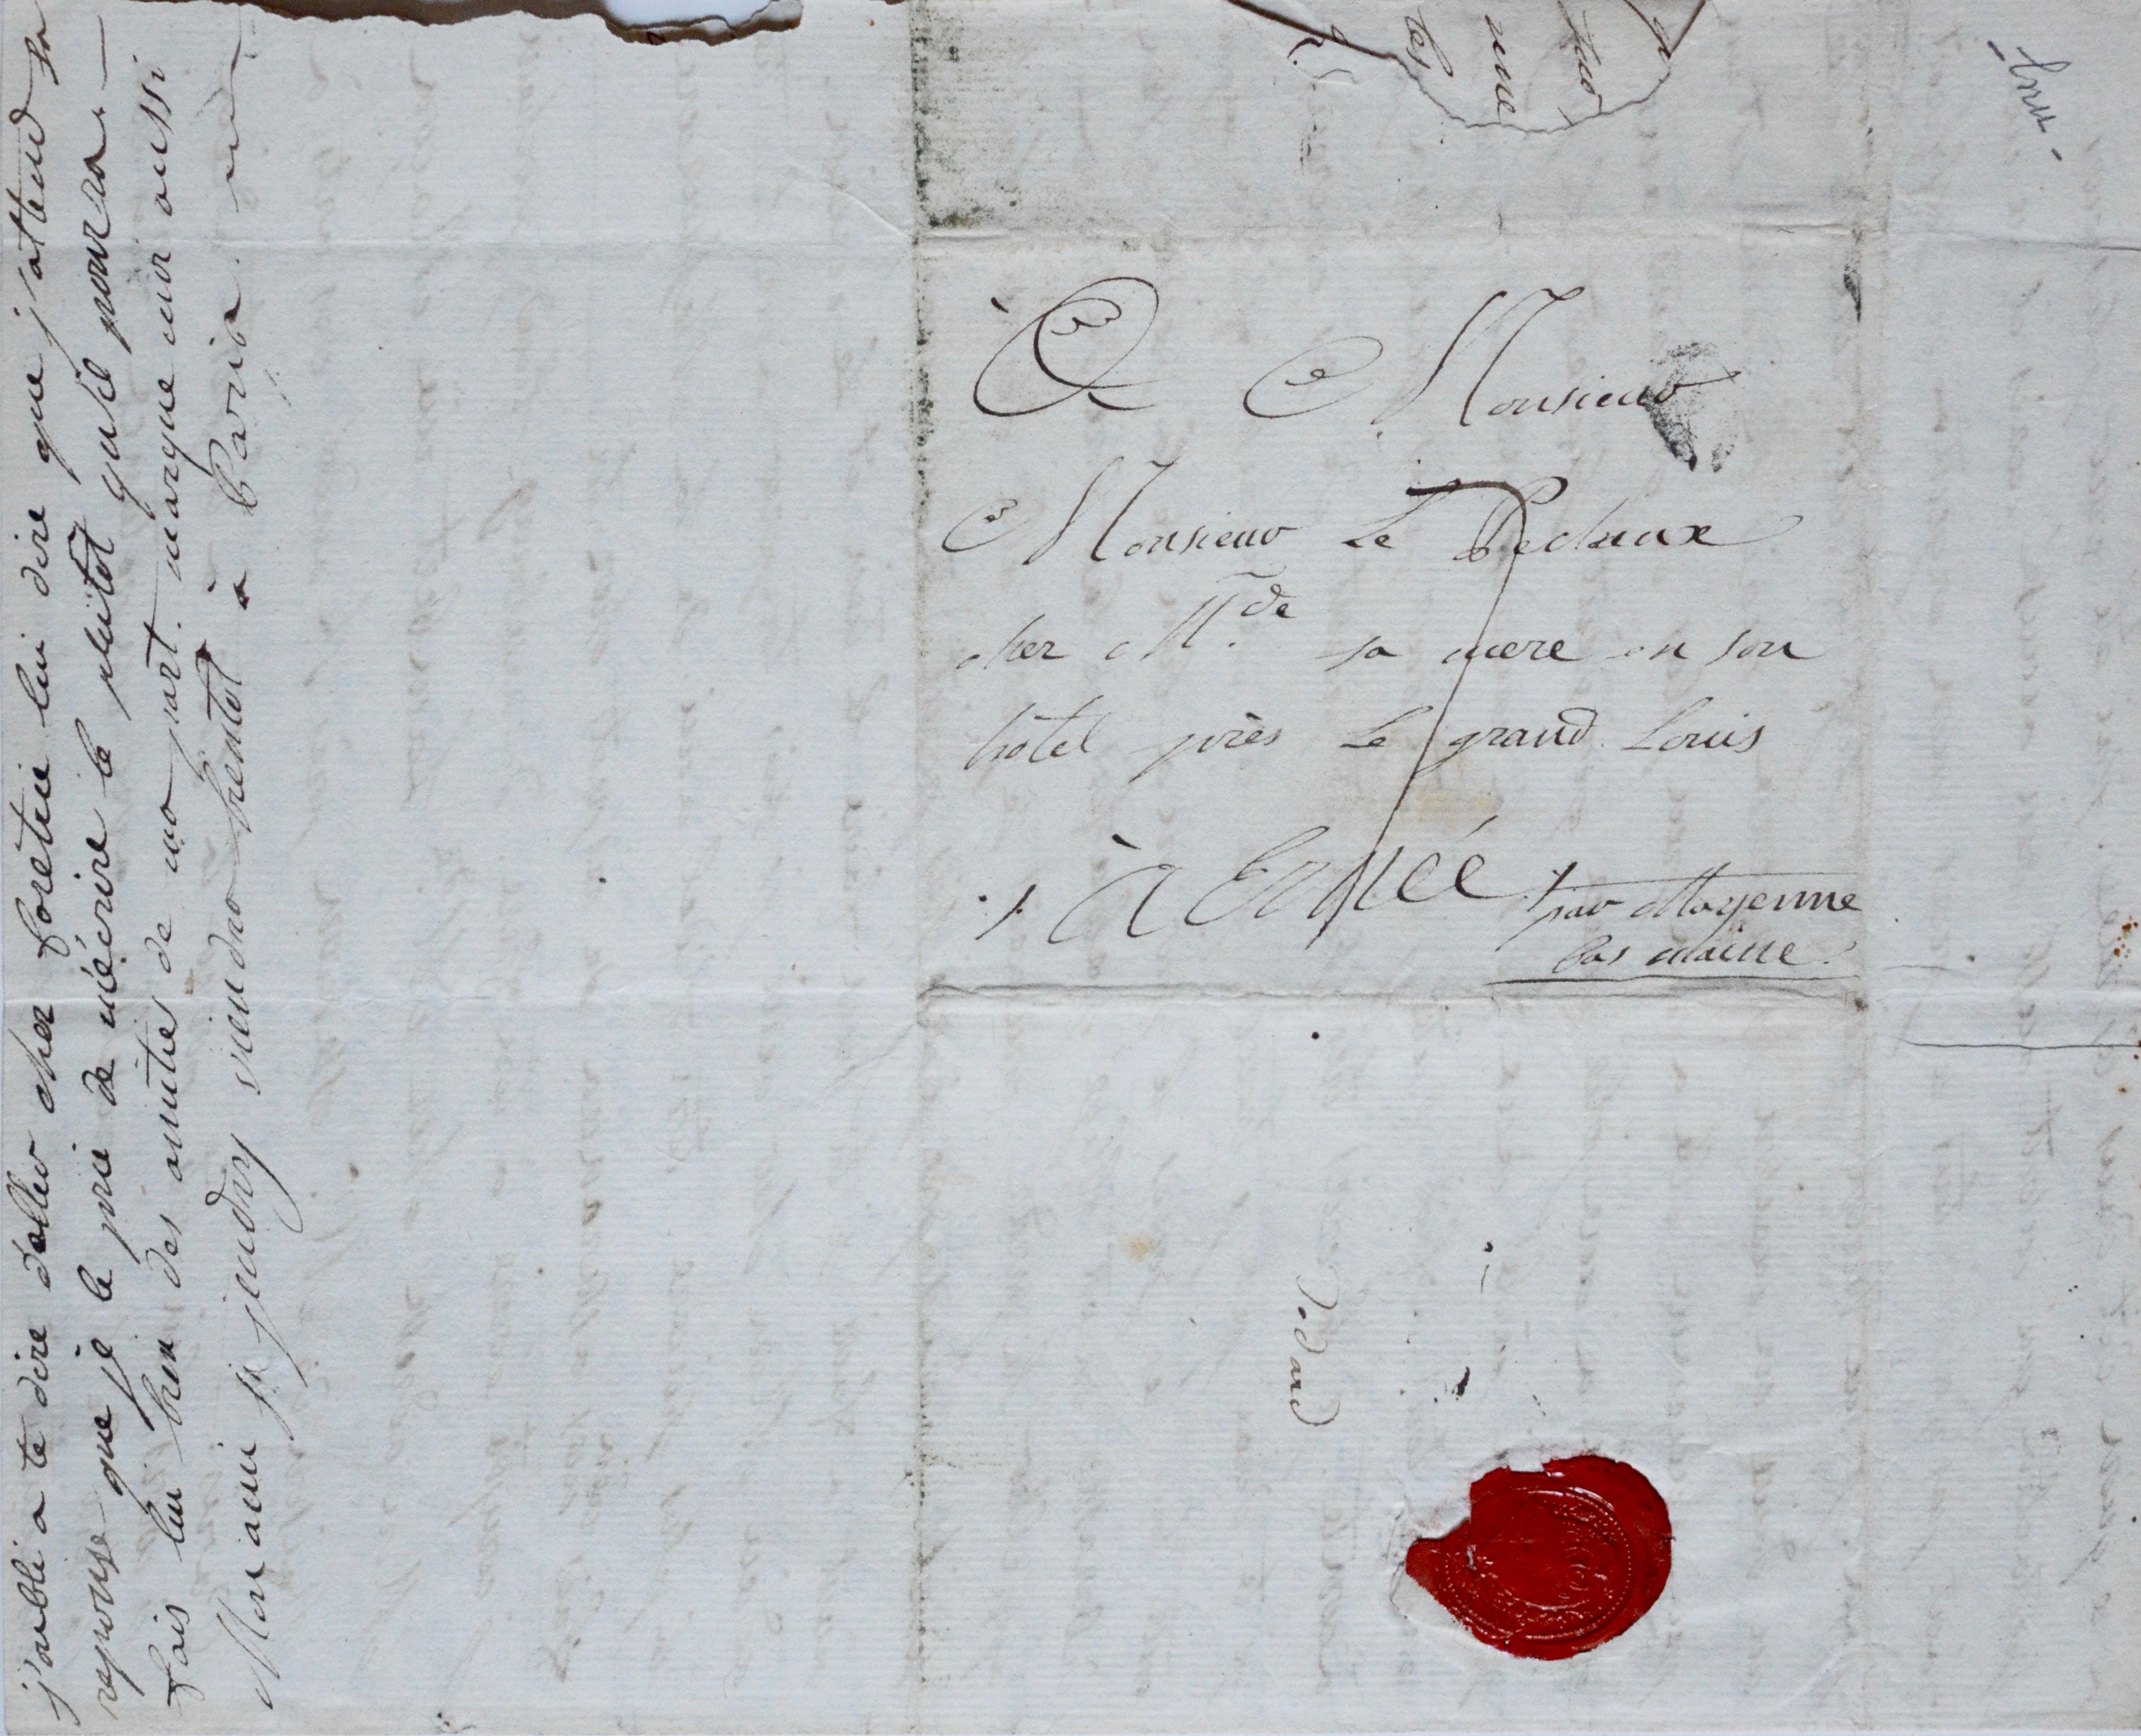 j'oublié a te dire d'aller cher foretrie lui dire que j'attend sa
reponse que je le prie de m'écrire le plutot qu'il pourra.
fais lui bien des amitiés de ma part. marque moi aussi
Mon ami si jeudry viendra bientot à Paris.
A Monsieur
Monsieur Le Pechaux
cher Mde sa mere en son
hôtel près Le grand Louis
à Ernée
par Mayenne
bas maine
7